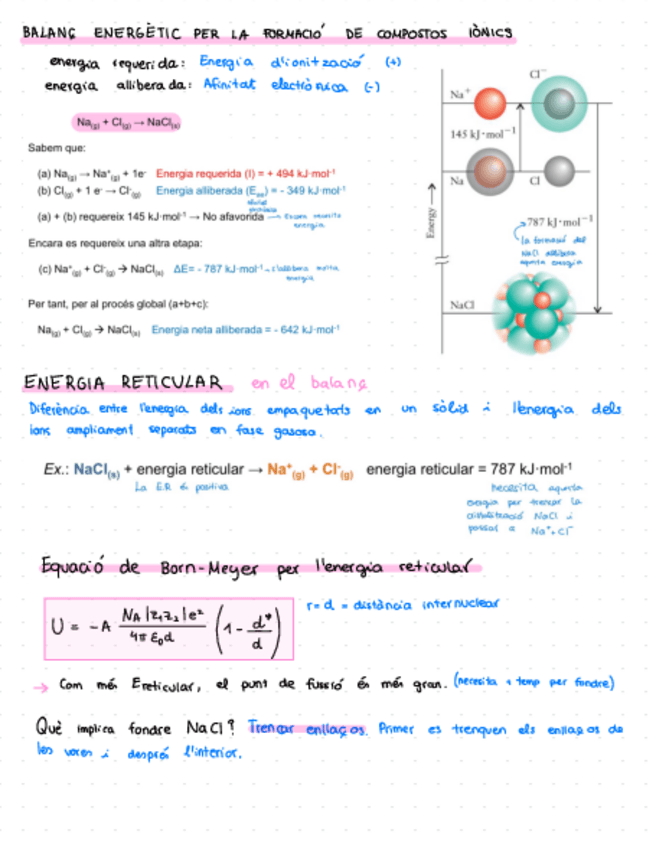 BALANÇ ENERGÈTIC PER LA FORMACIÓ DE COMPOSTOS IÒNICS
energia requerida: Energia d'ionització (+)
energia alliberada: Afinitat electrònica (-)
Na(g) + Cl(g) → NaCl(s)
Sabem que:
(a) Na(g) → Na⁺(g) + 1e⁻ Energia requerida (I) = + 494 kJ·mol⁻¹
(b) Cl(g) + 1 e⁻ → Cl⁻(g) Energia alliberada (Eea) = - 349 kJ·mol⁻¹
(a) + (b) requereix 145 kJ·mol⁻¹ → No afavorida
energia
Encara es requereix una altra etapa:
(c) Na⁺(g) + Cl⁻(g) → NaCl(s) ΔE= - 787 kJ·mol⁻¹ → s'allibera molta
energia
Per tant, per al procés global (a+b+c):
Na(g) + Cl(g) → NaCl(s) Energia neta alliberada = - 642 kJ·mol⁻¹
Cl⁻
Na⁺
145 kJ·mol⁻¹
Na
Cl
Energy
787 kJ·mol⁻¹
la formació del
NaCl allibera
aquesta energia
NaCl
ENERGIA RETICULAR en el balanç
Diferència entre l'energia dels ions empaquetats en un sòlid i l'energia dels
ions ampliament separats en fase gasosa.
Ex.: NaCl(s) + energia reticular → Na⁺(g) + Cl⁻(g) energia reticular = 787 kJ·mol⁻¹
La E.R és positiva
necessita aquesta
energia per trencar la
NaCl i
passar a Na⁺+Cl⁻
Equació de Born-Meyer per l'energia reticular
U = -A NA|z₁z₂|e²/4πε₀d (1 - d*/d)
r = d = distància internuclear
→ Com més Ereticular, el punt de fussió és més gran. (necesita + temp per fondre)
Què implica fondre NaCl? Trencar enllaços. Primer es trenquen els enllaços de
les vores i després l'interior.